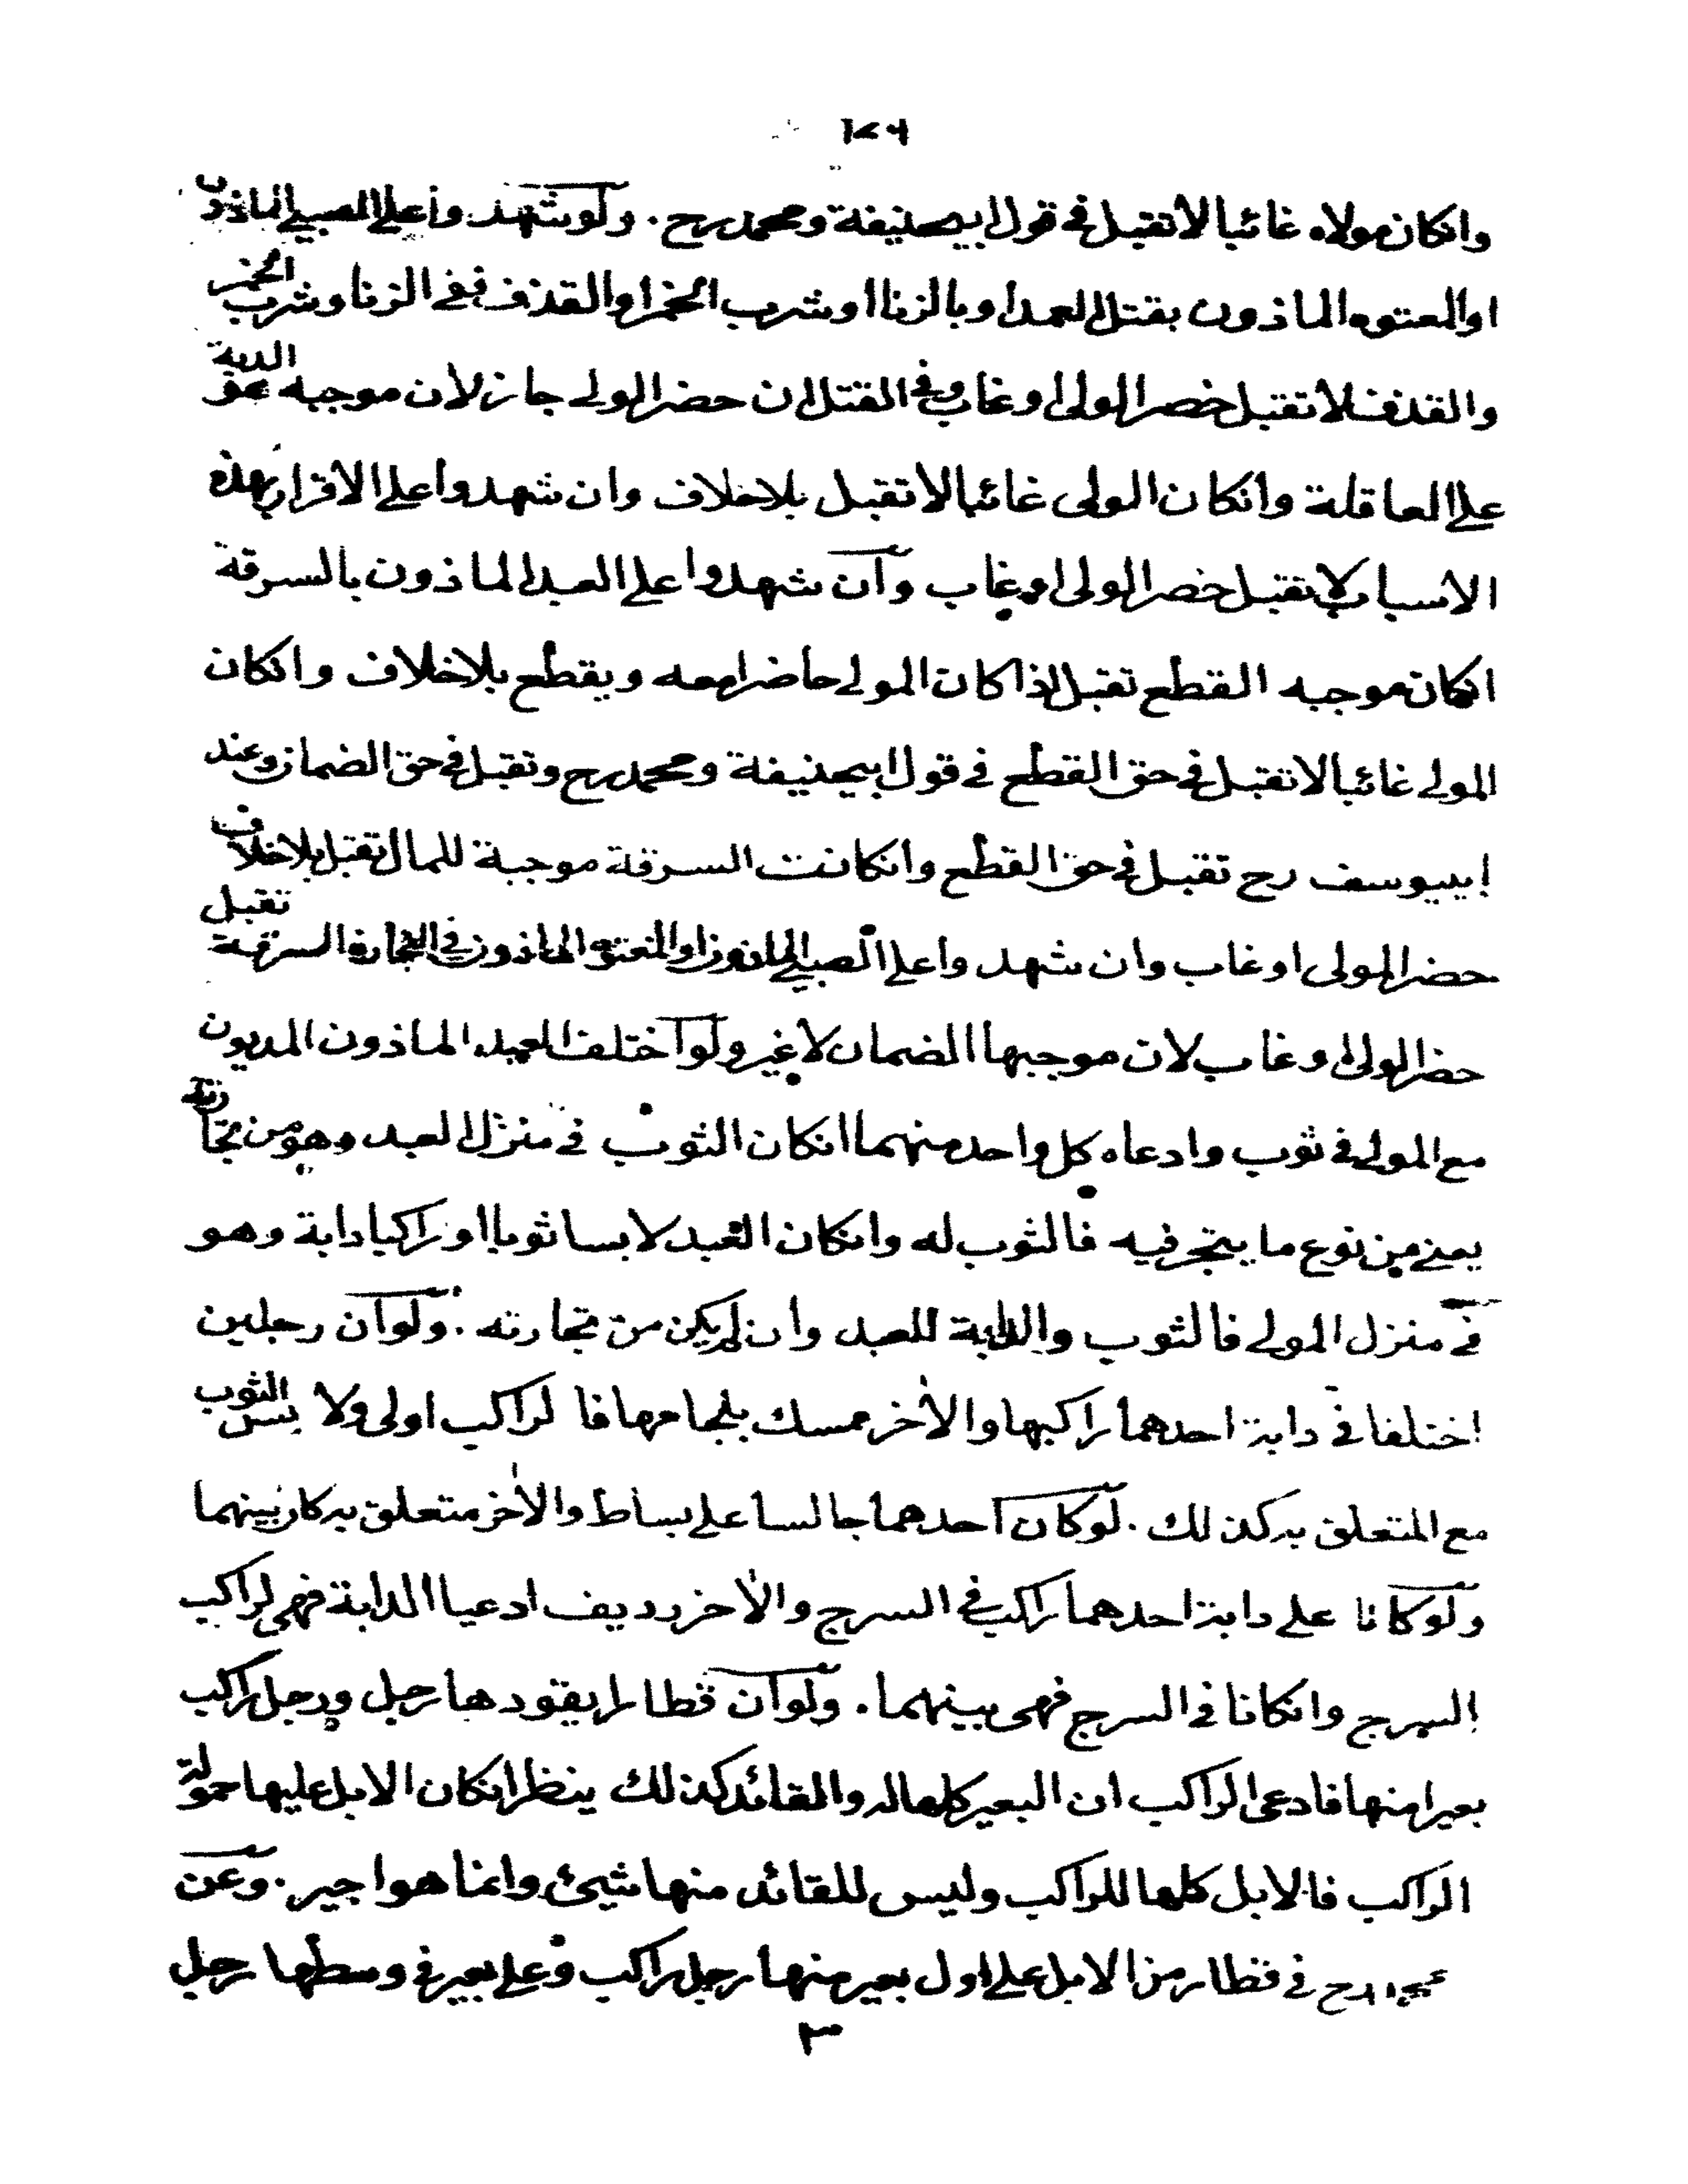 ١٤٦
وانكان مولاه غائبا لا تقبل في قول ابيحنيفة ومحمد رح. ولو شهدوا على الصبي الماذون
او المعتوه الماذون بقتل العمد او بالزنا او شرب الخمر او القذف ففي الزنا وشرب الخمر
والقذف لا تقبل حضر الولى او غاب وفي القتل ان حضر الولي جاز لان موجبه الدية
على العاقلة وانكان الولى غائبا لا تقبل بلا خلاف وان شهدوا على الاقرار بهذه
الاسباب لا تقبل حضر الولى او غاب وان شهدوا على العبد الماذون بالسرقة
انكان موجبه القطع تقبل اذا كان المولي حاضرا معه ويقطع بلا خلاف وانكان
المولي غائبا لا تقبل في حق القطع في قول ابيحنيفة ومحمد رح وتقبل في حق الضمان وعند
ابييوسف رح تقبل في حق القطع وانكانت السرقة موجبة للمال تقبل بلا خلاف
حضر المولى او غاب وان شهدوا على الصبي الماذون او المعتوه الماذون في التجارة السرقة تقبل
حضر الولى او غاب لان موجبها الضمان لا غير ولو اختلف العبد الماذون المديون
مع المولي في ثوب وادعاه كل واحد منهما انكان الثوب في منزل العبد وهو من تجارته
يعني من نوع ما يتجر فيه فالثوب له وانكان العبد لابسا ثوبا او راكبا دابة وهو
في منزل المولي فالثوب والدابة للعبد وان لم يكن من تجارته. ولو ان رجلين
اختلفا في دابة احدهما راكبها والاخر ممسك بلجامها فالراكب اولى ولابس الثوب
مع المتعلق به كذلك. لو كان احدهما جالسا على بساط والاخر متعلق به كان بينهما
ولو كانا على دابة احدهما راكب في السرج والاخر رديف ادعيا الدابة فهي لراكب
السرج وانكانا في السرج فهي بينهما. ولو ان قطارا يقودها رجل ورجل راكب
بعيرا منها فادعى الراكب ان البعير كلها له والقائد كذلك ينظر انكان الابل عليها حمولة
الراكب فالابل كلها للراكب وليس للقائد منها شيئ وانما هو اجير. وعن
محمد رح في قطار من الابل على اول بعير منها رجل راكب وعلى بعير في وسطها رجل
٣